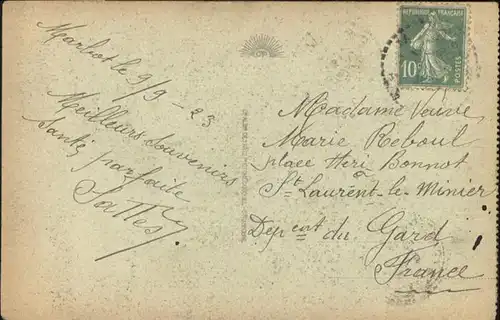 le 9/9 - 23
Meilleurs Souvenirs
Santé parfaite
REPUBLIQUE FRANÇAISE
10
POSTES
Madame Veuve
Marie Reboul
place Héri Bonnot
à
St Laurent-le-Minier
Dépent du Gard
France